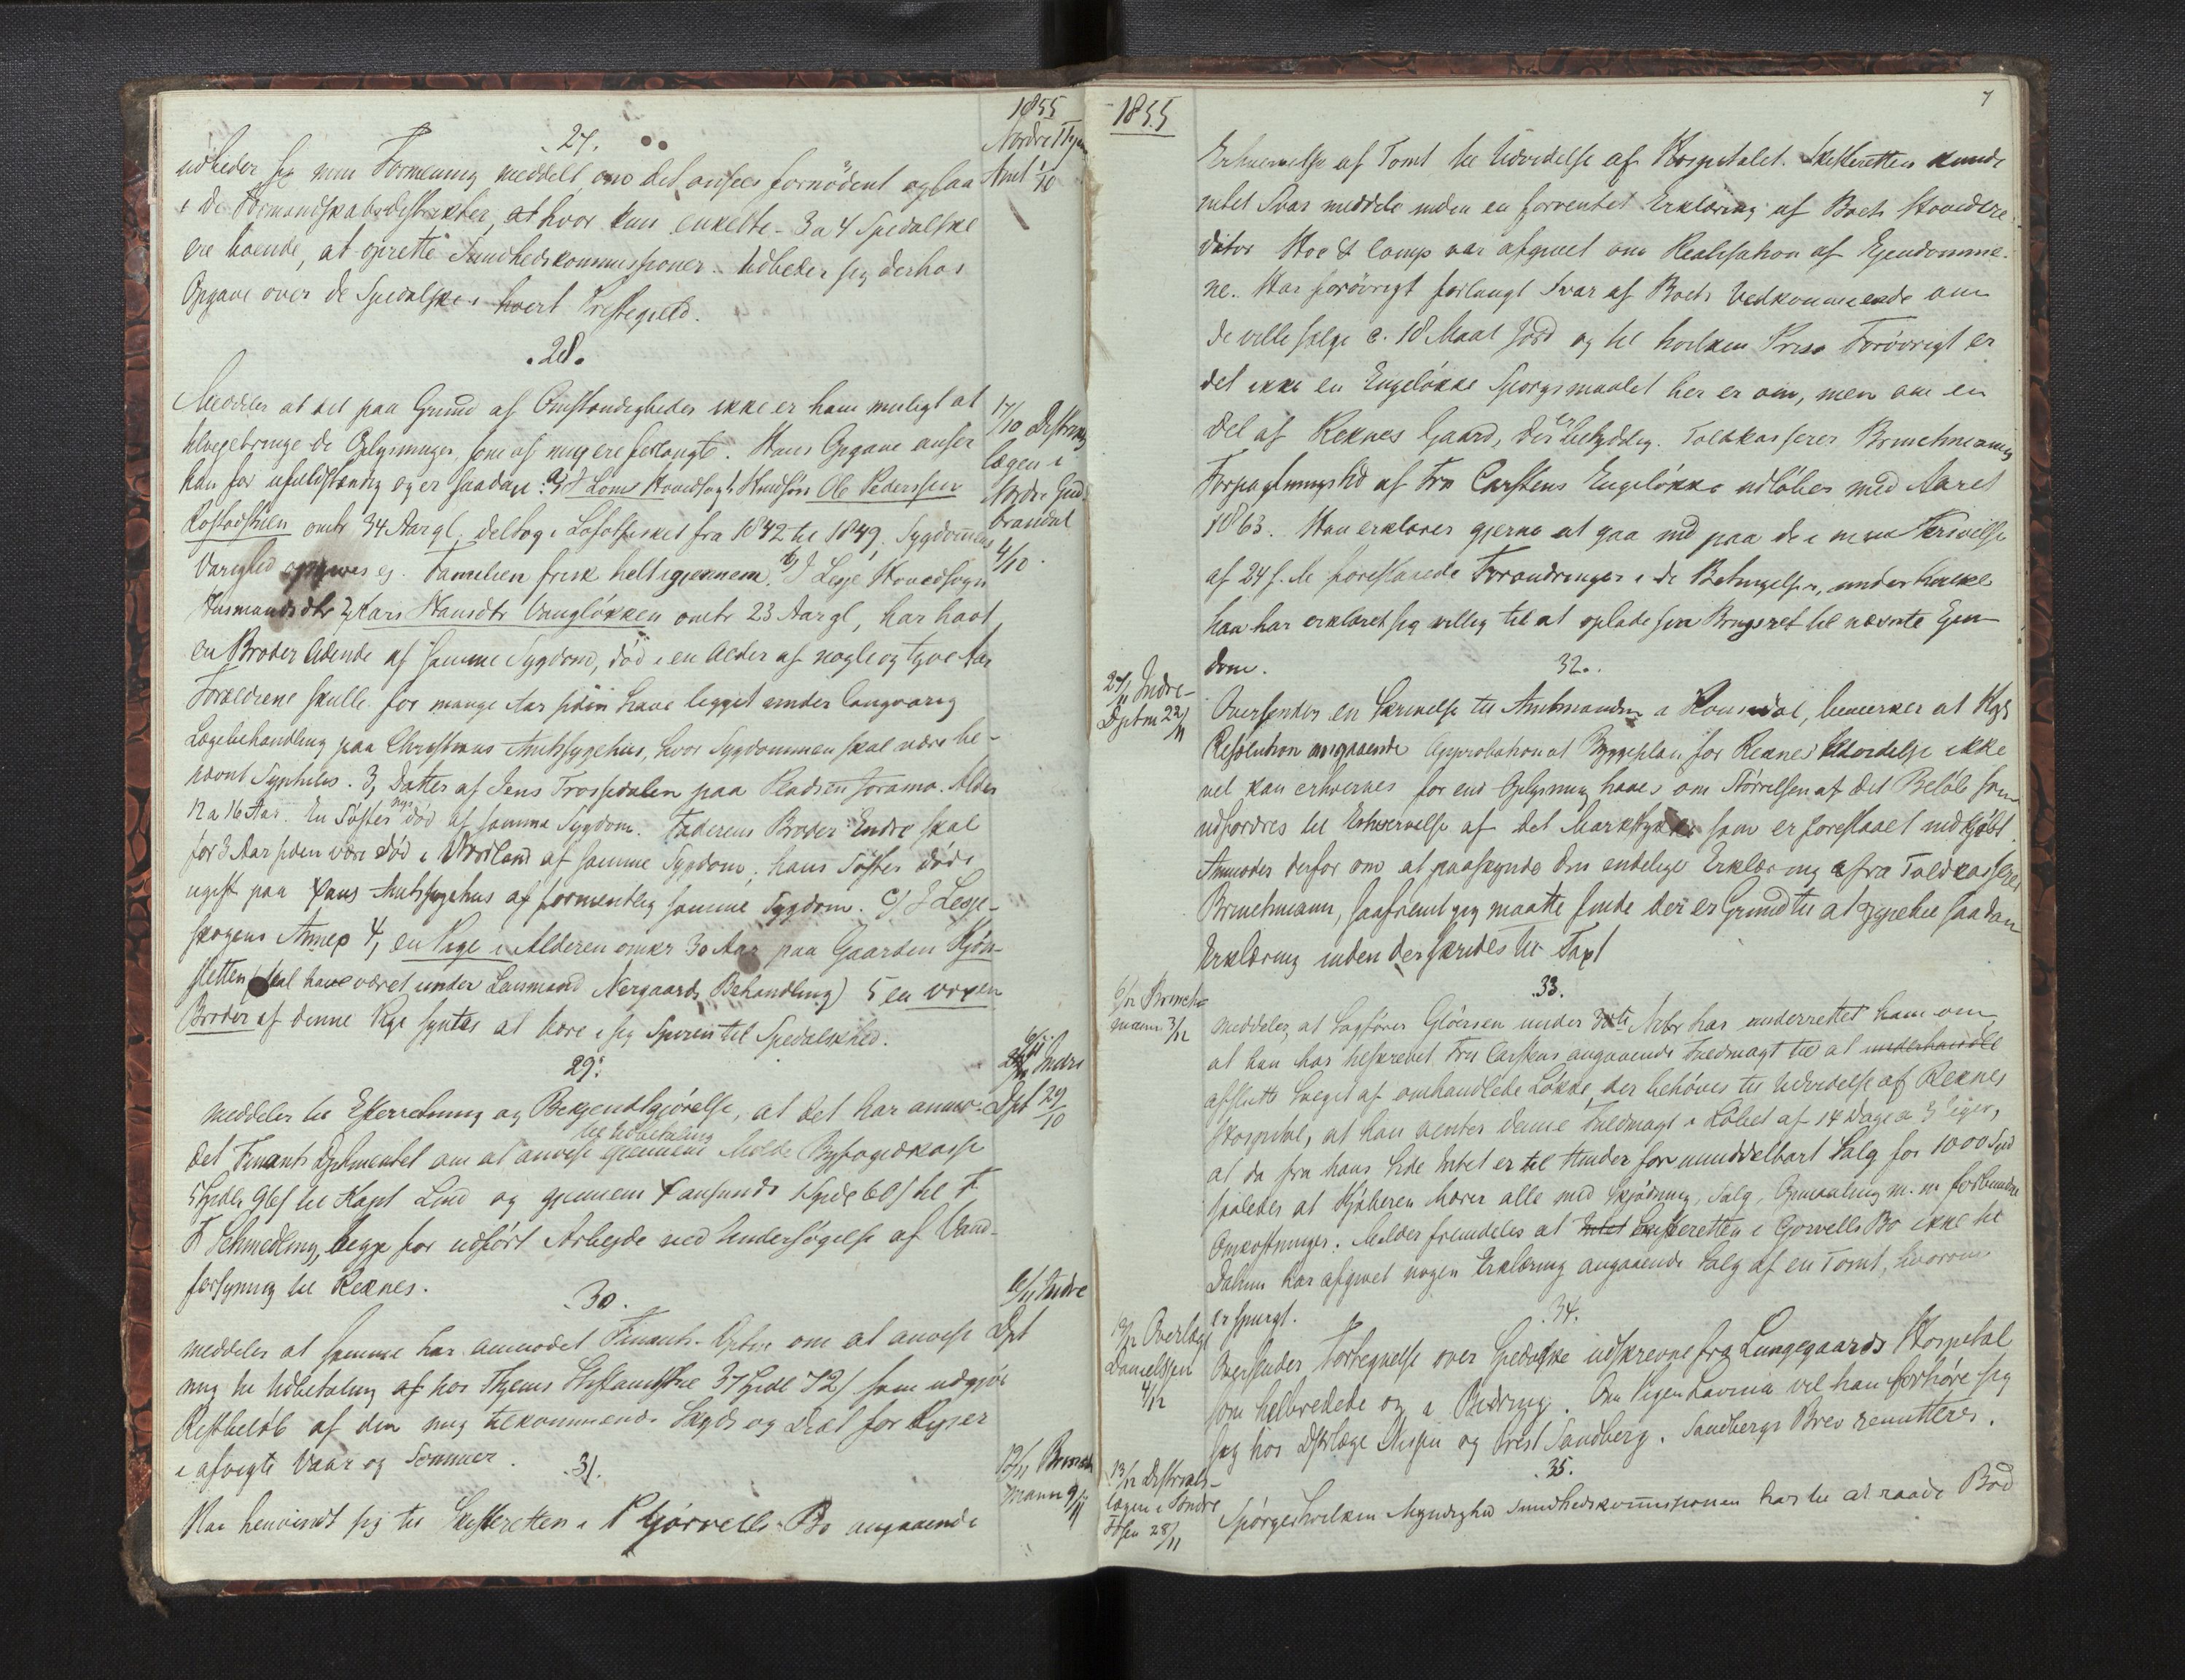 1855
27.
Nordre Thjems
Amt 1/10
udbeder sig min Formening meddelt, om det ansees fornödent ogsaa
i de Formandskabsdistrikter, hvor kun enkelte - 3 a 4 Spedalske
ere boende, at oprette Sundhedskommissioner. Udbeder sig derhos
Opgave over de Spedalske i hvert Præstegjeld.
28.
17/10 Distrikts
lægen i
Nordre Gud
brandal
4/10.
Meddeler at det paa Grund af Omstændigheder ikke er ham muligt at
tilvejebringe de Oplysninger, som af mig ere forlangte. Hans Opgave anser
han for ufuldstændig og er saadan: a) I Loms Hovedsogn Knudsön Ole Pederssen
omtr 34 Aar gl, deltog i Lofotfisket fra 1842 til 1849, Sygdommens
Varighed opgives ej. Familien frisk helt igjennem. b) I Lesje Hovedsogn
Husmandsdtr 2, Kari Hansdtr Vanglökken omtr 23 Aar gl, har havt
en Broder lidende af samme Sygdom, död i en Alder af nogle og tyve Aar
Forældrene skulle for mange Aar siden have ligget under langvarig
Lægebehandling paa Christians Amtssygehus, hvor Sygdommen skal være be-
nævnt Syphilis. 3, Datter af Jens Trosjedalen paa Pladsen Joramo. Alder
12 a 16 Aar. En Söster död af samme Sygdom. Faderens Broder Endre skal
for 3 Aar siden være död i af samme Sygdom, hans Söster döde
ugift paa Xans Amtssygehus af formentlig samme Sygdom. c) I Lesje-
skogens Annex 4, en Pige i Alderen omkr 30 Aar paa Gaarden
(skal have været under Lensmand Nergaards Behandling) 5 en voxen
Broder af denne Pige syntes at bære i sig Spiren til Spedalskhed.
29.
6/11 Indre
Dpt 29/10
meddeler til Efterretning og Bekjendtgjörelse, at det har anmo-
det Finants Dptmentet om at anvise til Udbetaling gjennem Molde Byfogedkasse
5 Spdlr 96 s til Kapt Lind og gjennem Xansunds 1 Spd 60 s til F.
F Schmedling, begge for udfört Arbejde ved Undersögelse af Vand-
forsyning til Reknes.
30.
6/11 Indre
Dpt
meddeler at samme har anmodet Finants-Dptm om at anvise
mig til Udbetaling hos Thjems Stiftamtstue 37 Spdl 72 s som udgjör
Restbelöb af den mig tilkommende Skyds og Diæt for Rejser
i afvigte Vaar og Sommer.
31.
12/11 Brinch
mann 9/11
Har henvendt sig til Skifteretten i P Gjörvells Bo angaaende
1855
7
Erhvervelse af Tomt til Udvidelse af Hospitalet. Skifteretten kunde
intet Svar meddele inden en forventet Erklæring af Boets Hovedcre-
ditor Hoe & Comp var afgivet om Realisation af Ejendomme-
ne. Har forövrigt forlangt Svar af Boets Vedkommende om
de ville sælge c. 10 Maal Jord og til hvilken Pris. Forövrigt er
det ikke en Engelökke Spörgsmaalet her er om, men om en
Del af Reknes Gaard, der er ubetydelig. Toldkasserer Brinchmanns
Forpagtningstid af Fru Carstens Engelökke udlöber med Aaret
1863. Han erklærer gjerne at gaa ind paa de i min Skrivelse
af 24 f. M. foreslaaede Forandringer i de Betingelser, under hvilke
han har erklæret sig villig til at oplade sin Brugsret til nævnte Ejen-
dom.
32.
27/11 Indre-
Dptm 22/11
Oversender en Skrivelse til Amtmanden i Romsdal, bemærker at Kgl
Resolution angaaende Approbation at Byggeplan for Reknes Udvidelse ikke
vel kan erhverves för end Oplysning haves om Störrelsen af det Belöb som
udfordres til Erhvervelse af det Markstykke som er foreslaaet indkjöbt.
Anmodes derfor om at paaskynde den endelige Erklæring fra Toldkasserer
Brinchmann, saafremt jeg maatte finde der er Grund til at oppebie saadan
Erklæring inden der skrides til Taxt
33.
6/12 Brinch-
mann 3/12
meddeler, at Sagförer Glöersen under 30te Novbr har underrettet ham om,
at han har tilskrevet Fru Carstens angaaende Fuldmagt til at underhandle
afslutte Salget af omhandlede Lökke, der behöves til Udvidelse af Reknes
Hospital, at han venter denne Fuldmagt i Löbet af 14 Dage a 3 Uger,
at da fra hans Side Intet er til Hinder for umiddelbart Salg for 1000 Spd
saaledes at Kjöberen bærer alle med Skjödning, Salg, Opmaaling m. m. forbundne
Omkostninger. Melder fremdeles at Intet Skifteretten i Gjörvells Bo ikke til
Datum har afgivet nogen Erklæring angaaende Salg af en Tomt, hvorom
er spurgt.
34.
10/12 Overlæge
Danielssen
4/12
Oversender Fortegnelse over Spedalske udskrevne fra Lungegaards Hospital
som helbredede og i Bedring. Om Pigen Lavinia vil han forhöre sig
hos Dstrlæge Nissen og Præst Sandberg. Sandbergs Brev remitteres.
35.
13/12 Distrikts-
lægen i Söndre
Fosen 28/11
Spörger hvilken Myndighed Sundhedskommissionen har til at raade Bod